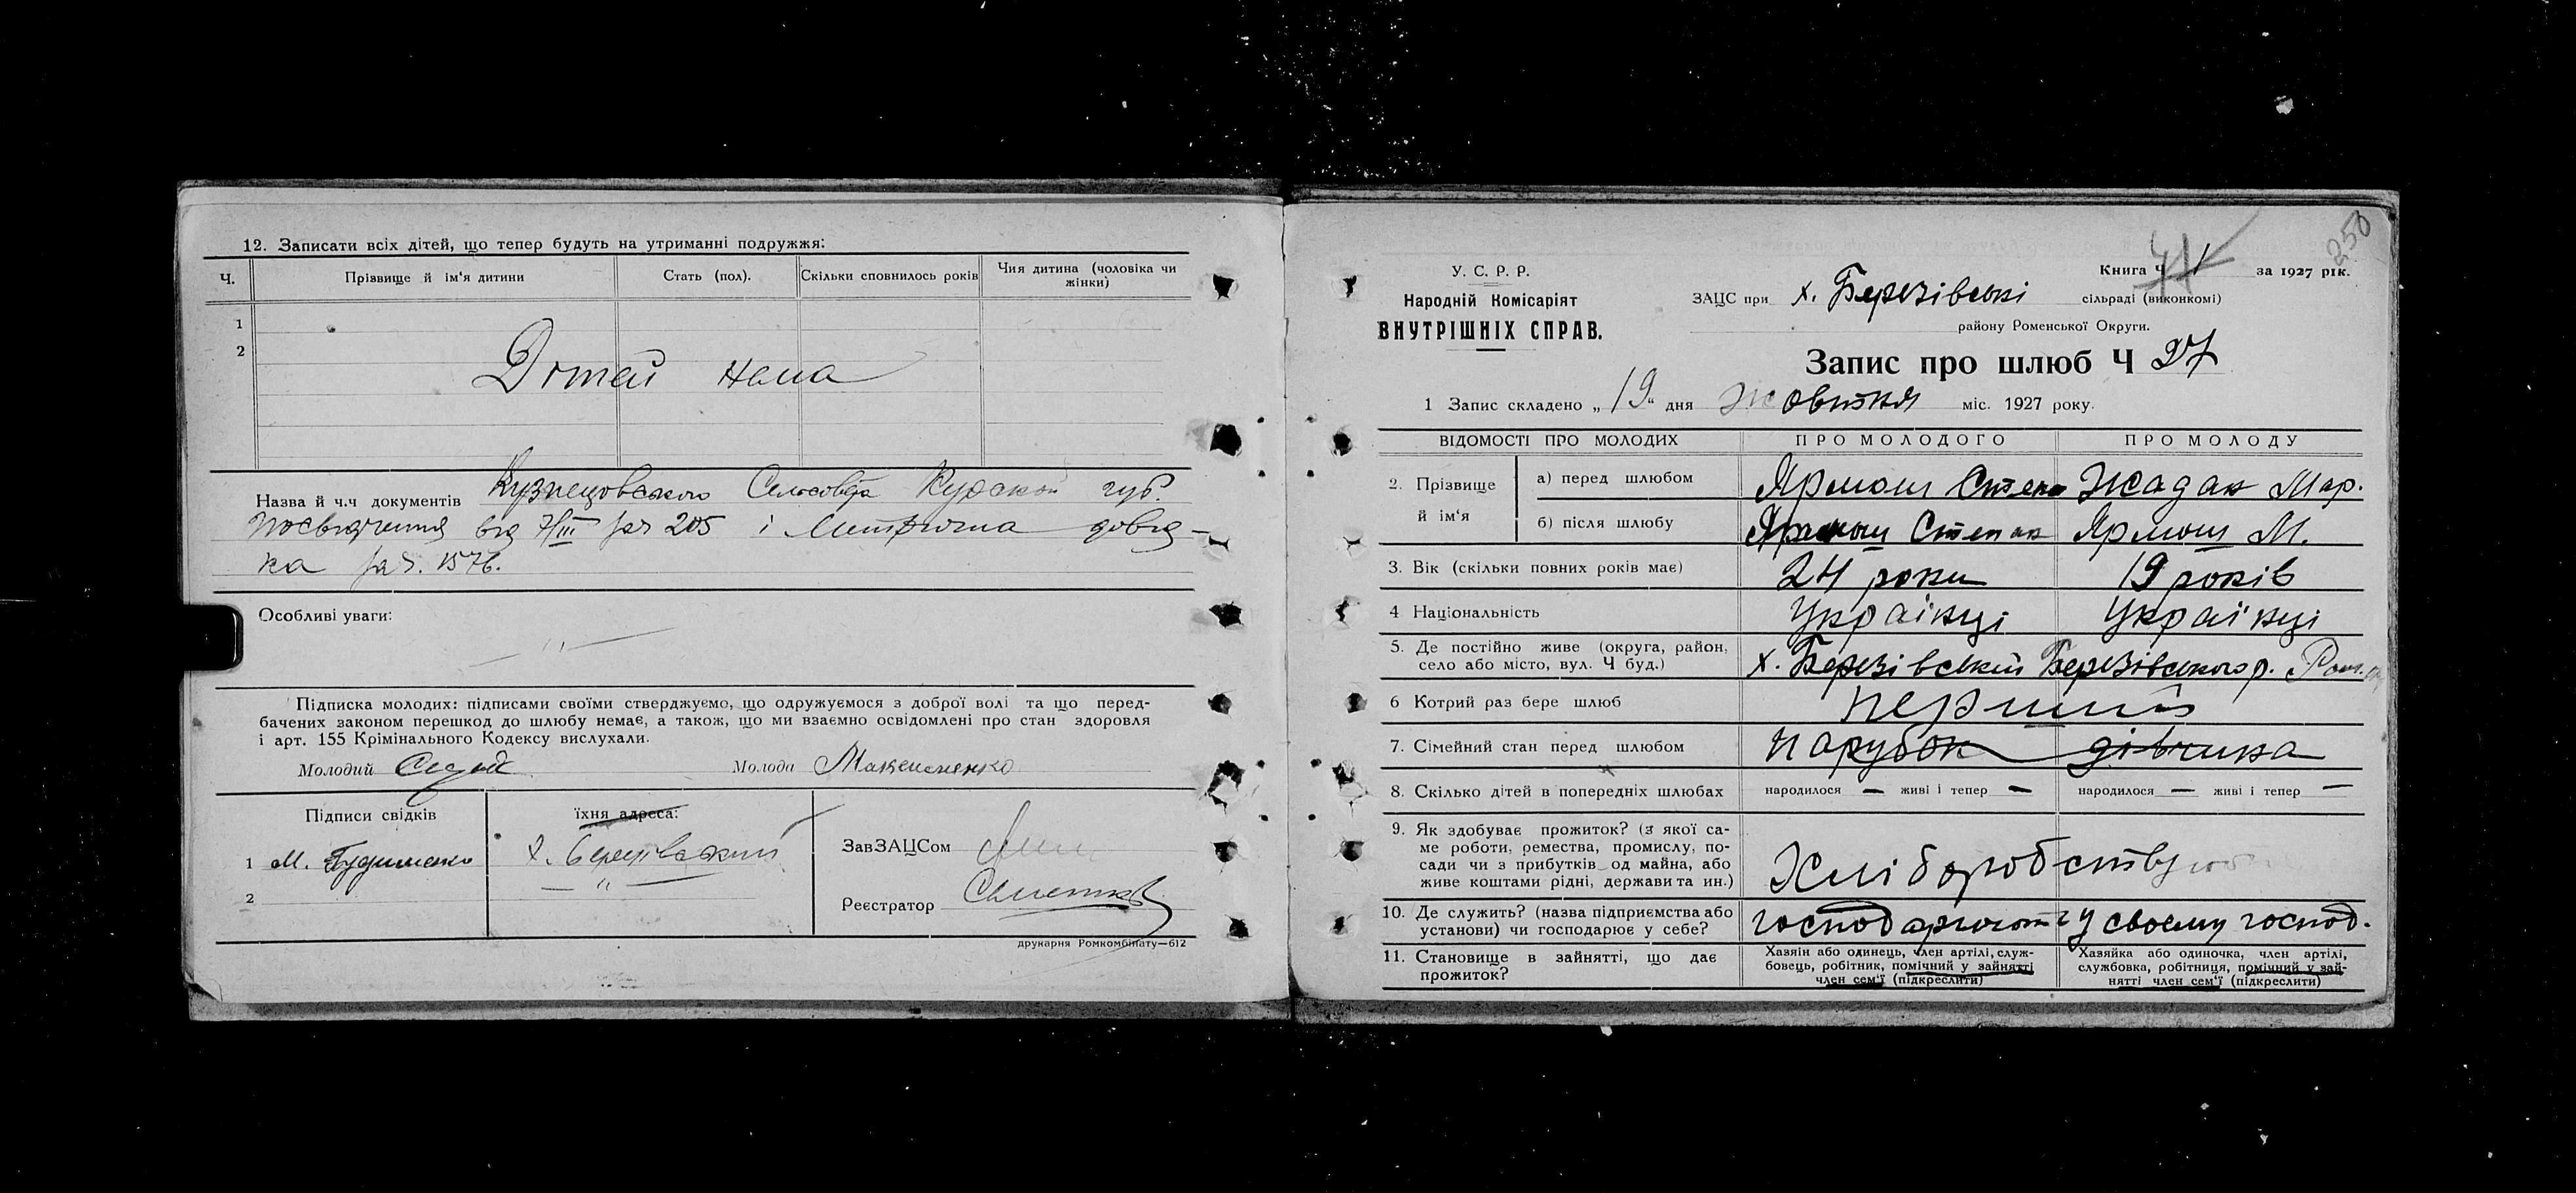 12. Записати всіх дітей, що тепер будуть на утриманні подружжя:
Ч. Прізвище й ім'я дитини Стать (пол). Скільки сповнилось років Чия дитина (чоловіка чи жінки)
1
2
Дітей нема
Назва й ч.ч документів Кузнецовського Сельсовета Курской губ.
Посвідчення від 7/III за ч 205 і Метрична довід-
ка за ч. 1576.
Особливі уваги: — " —
Підписка молодих: підписами своїми стверджуємо, що одружуємося з доброї волі та що перед-
бачених законом перешкод до шлюбу немає, а також, що ми взаємно освідомлені про стан здоровля
і арт. 155 Крімінального Кодексу вислухали.
Молодий Молода Максименко
Підписи свідків їхня адреса:
1 М. х. Березівський
2 — " —
ЗавЗАЦСом
Реєстратор
друкарня Ромкомбінату—612
250
У. С. Р. Р.
Народній Комісаріят
ВНУТРІШНІХ СПРАВ.
Книга Ч 1 за 1927 рік.
ЗАЦС при х. Березівські сільраді (виконкомі)
району Роменської Округи.
Запис про шлюб Ч 27
1 Запис складено „19" дня Жовтня міс. 1927 року.
ВІДОМОСТІ ПРО МОЛОДИХ ПРО МОЛОДОГО ПРО МОЛОДУ
2. Прізвище й ім'я
а) перед шлюбом Ярмош Степан Жадан Мар.
б) після шлюбу Ярмош Степан Ярмош М.
3. Вік (скільки повних років має) 24 роки 19 років
4 Національність Українці Українці
5. Де постійно живе (округа, район,
село або місто, вул. Ч буд.) х. Березівський Березівського р. Ром.
6 Котрий раз бере шлюб перший
7. Сімейний стан перед шлюбом парубок дівчина
8. Скілько дітей в попередніх шлюбах народилося — живі і тепер — народилося — живі і тепер —
9. Як здобуває прожиток? (з якої са-
ме роботи, ремества, промислу, по-
сади чи з прибутків од майна, або
живе коштами рідні, держави та ин.) Хліборобствують
10. Де служить? (назва підприємства або
установи) чи господарює у себе? господарюють у своему господ.
11. Становище в зайнятті, що дає
прожиток?
Хазяін або одинець, член артілі, служ-
бовець, робітник, помічний у зайнятті
член сем'ї (підкреслити)
Хазяйка або одиночка, член артілі,
службовка, робітниця, помічний у зай-
нятті член сем'ї (підкреслити)